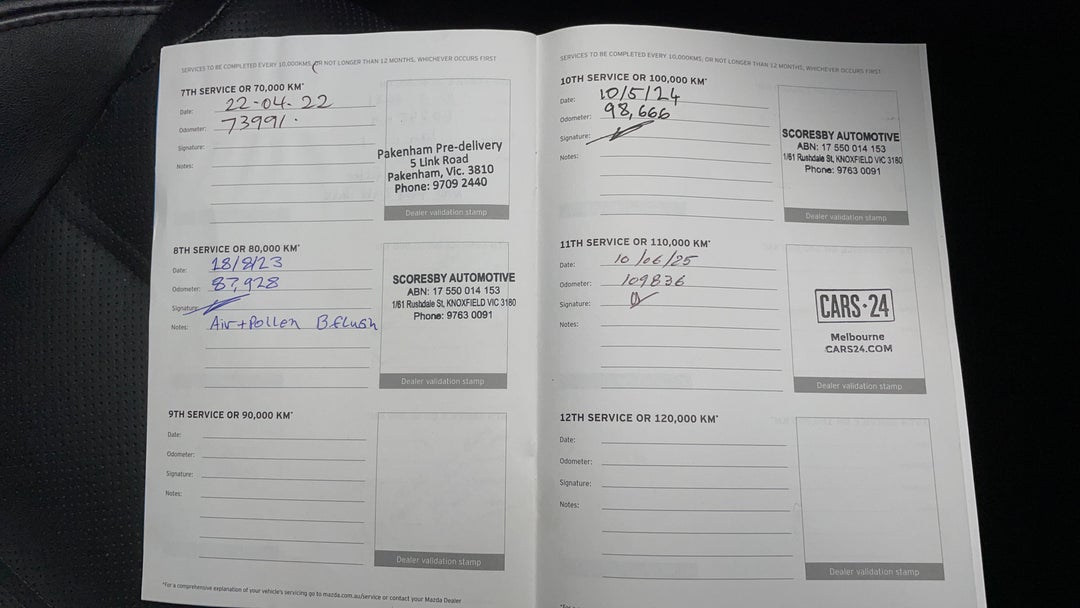 SERVICES TO BE COMPLETED EVERY 10,000KMS, OR NOT LONGER THAN 12 MONTHS, WHICHEVER OCCURS FIRST
7TH SERVICE OR 70,000 KM*
Date: 22-04-22
Odometer: 73991.
Signature:
Notes:
Pakenham Pre-delivery
5 Link Road
Pakenham, Vic. 3810
Phone: 9709 2440
Dealer validation stamp
8TH SERVICE OR 80,000 KM*
Date: 18/8/23
Odometer: 87,928
Signature:
Notes: Air+Pollen B.flush
SCORESBY AUTOMOTIVE
ABN: 17 550 014 153
1/61 Rushdale St, KNOXFIELD VIC 3180
Phone: 9763 0091
Dealer validation stamp
9TH SERVICE OR 90,000 KM*
Date:
Odometer:
Signature:
Notes:
Dealer validation stamp
*For a comprehensive explanation of your vehicle's servicing go to mazda.com.au/service or contact your Mazda Dealer
SERVICES TO BE COMPLETED EVERY 10,000KMS, OR NOT LONGER THAN 12 MONTHS, WHICHEVER OCCURS FIRST
10TH SERVICE OR 100,000 KM*
Date: 10/5/24
Odometer: 98,666
Signature:
Notes:
SCORESBY AUTOMOTIVE
ABN: 17 550 014 153
1/61 Rushdale St, KNOXFIELD VIC 3180
Phone: 9763 0091
Dealer validation stamp
11TH SERVICE OR 110,000 KM*
Date: 10/06/25
Odometer: 109836
Signature:
Notes:
CARS·24
Melbourne
CARS24.COM
Dealer validation stamp
12TH SERVICE OR 120,000 KM*
Date:
Odometer:
Signature:
Notes:
Dealer validation stamp
*For a